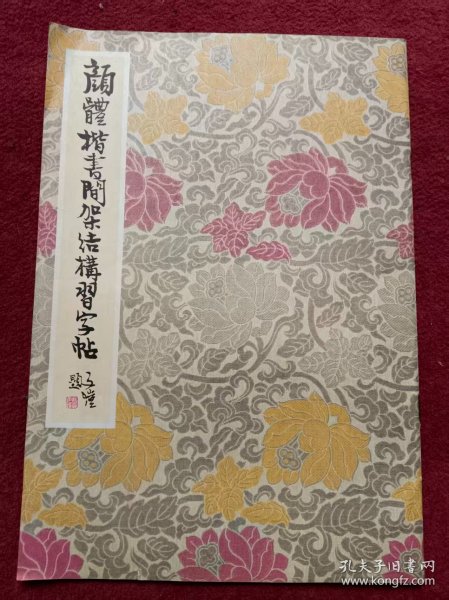 顔體楷書間架结構習字帖
孔夫子旧书网
www.kongfz.com